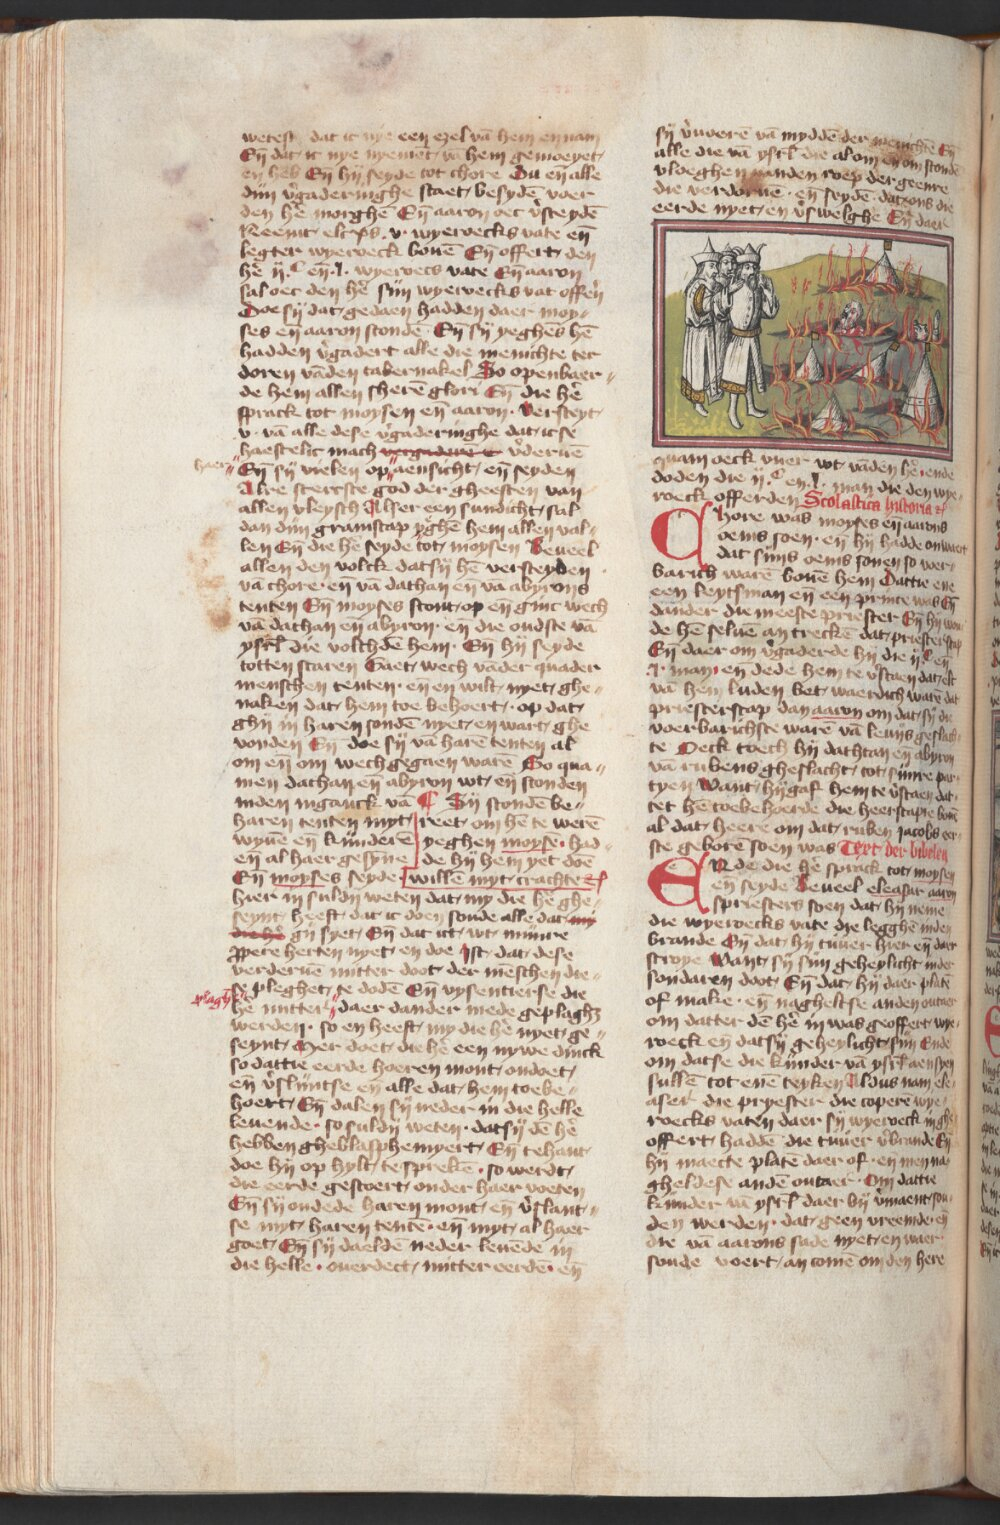 wetest dat ic nye een ezel vā hem en nam
Eñ dat ic nye nyemēt vā hem gemoeyet
en heb Eñ hij seyde tot chore Du eñ alle
dijn v̄gaderinghe staet besydē voer
den hē morghē Eñ aaron oec v̄steydē
Neemt elcs .v. wyervecks vate eñ
legter wyeroeck bouē Eñ offert den
hē ij.c eñ .l. wyerocs vate Eñ aaron
sal oec den hē sijn wyeroecks vat offerē
Doe sij dat gedaen hadden daer moy-
ses eñ aaron stondē Eñ sij yeghēs hē
hadden v̄gadert alle die menichte ter
doren vādēn tabernakel So openbaer-
de hem allen sherē glori Eñ die hē
sprack tot moysen eñ aaron. Versteyt
v. vā alle dese v̄gaderinghe dat icse
haestelic mach v̄deruē
haer Eñ sij vielen op aensicht eñ seyden
Alre stercste god der gheesten van
allen vleysch Alser een sundicht sal
dan dijn gramscap yghē hem allen val-
len Eñ die hē seyde tot moysen Beueel
allen den volck dat sij hē versteyden
vā chore. eñ vā dathan eñ vā abyrons
tenten Eñ moyses stont op eñ ginc wech
vā dathan eñ abyron. eñ die oudste vā
ysrl die volchdē hem. Eñ hij seyde
totten scaren Gaet wech vāder quader
menschen tenten. eñ en wilt nyet ghe-
naken dat hem toe behoert. op dat
ghij in haren sondē nyet en wart ghe
vonden Eñ doe sij vā harē tenten al
om eñ om wech gegaen warē So qua-
men dathan eñ abyron wt eñ stonden
inden inganck vā haren tenten myt
wyuē eñ kijnderē
eñ al haer gesyne
Sij stondē be-
reet om hē te werē
yeghen moysē. had-
de hij hem yet doē
willē myt crachte
Eñ moyses seyde
hier in suldij weten dat my die hē ghe-
seynt heeft dat ic doen soude alle dat
gij syet Eñ dat ict wt mijnre
ppere herten nyet en doe Ist dat dese
verderuē mitter doot der meschen die-
se pleghet te dodē Eñ vysentierse die
plaghē hē mitter daer ander mede geplaght
werden. so en heeft my die hē nyet ge-
seynt Mer doet die hē een nywe dinck
so dattie eerde hoeren mont ondoet
eñ v̄slintse eñ alle dat hem toebe-
hoert Eñ dalen sij neder in die helle
leuende. so suldij weten. dat sij dē hē
hebben gheblasphemyert Eñ tehant
doe hij op hylt te sprekē. so werdt
die eerde gescoert onder haer voeten
Eñ sij ondede haren mont eñ v̄slant-
se myt haren tente. eñ myt al haer
goet Eñ sij daeldē neder leuēde in
die helle. ouerdect mitter eerdē. eñ
sij v̄uverē vā myddē der menichtē Eñ
alle die vā ysrl die al om eñ om stondē
vloeghen vanden roep der geenre
die verdoruē. eñ seydē. dat ons die
eerde nyet en v̄swelghe Eñ daer
quam oeck vuer wt vāden hē. ende
doden die ij.c en .l. man die den wye-
roeck offerden Scolastica historia
Chore was moyses eñ aarons
oems soen. eñ hij hadde onwaert
dat sijns oems sonen so voer-
barich warē bouē hem Dattie ene
een leytsman eñ een prince was Eñ
dander die meeste priester Eñ hij wou-
de hē seluē an treckē dat priesterscap
Eñ daer om v̄gaderde hij die ij.c eñ
.l. man. eñ dede hem te v̄staen dat elc
vā hem luden bet waerdich ware dat
priesterscap dan aaron om dat sij die
voerbarichste warē vā leuijs geslach-
te Oeck toech hij dathan eñ abyron
vā rubens gheslacht tot sijnre par-
tyen Want hij gaf hem te v̄staen dat
tet hē toebehoerde die heerscapie bouē
al dat heere om dat ruben jacobs eer-
ste geborē soen was Text der bibelen
Ende die hē sprack tot moysen
eñ seyde Beueel eleasar aaron
spriesters soen dat hij neme
die wyeroecks vate die legghē inden
brande Eñ dat hij tvuer hier eñ daer
stroye Want sij sijn geheylicht inder
sondaren doot Eñ dat hij daer platē
of make. eñ nagheltse anden outaer
om datter dē hē in was geoffert wye-
roeck eñ dat sij geheylicht sijn Ende
om datse die kijnder vā ysrl aensyen
sullē tot enē teyken Aldus nam ele-
aser die pryester die copere wye-
roecks vaten daer sij wyeroeck in ghe-
offert haddē die tvuer v̄brande Eñ
hij maecte platē daer of. eñ men na-
gheldese andē outaer. Om dattie
kijnder vā ysrl daer bij v̄maent sou-
den werden. dat geen vreemde. eñ
die vā aarons sade nyet en waer
soude voert an comē om den here